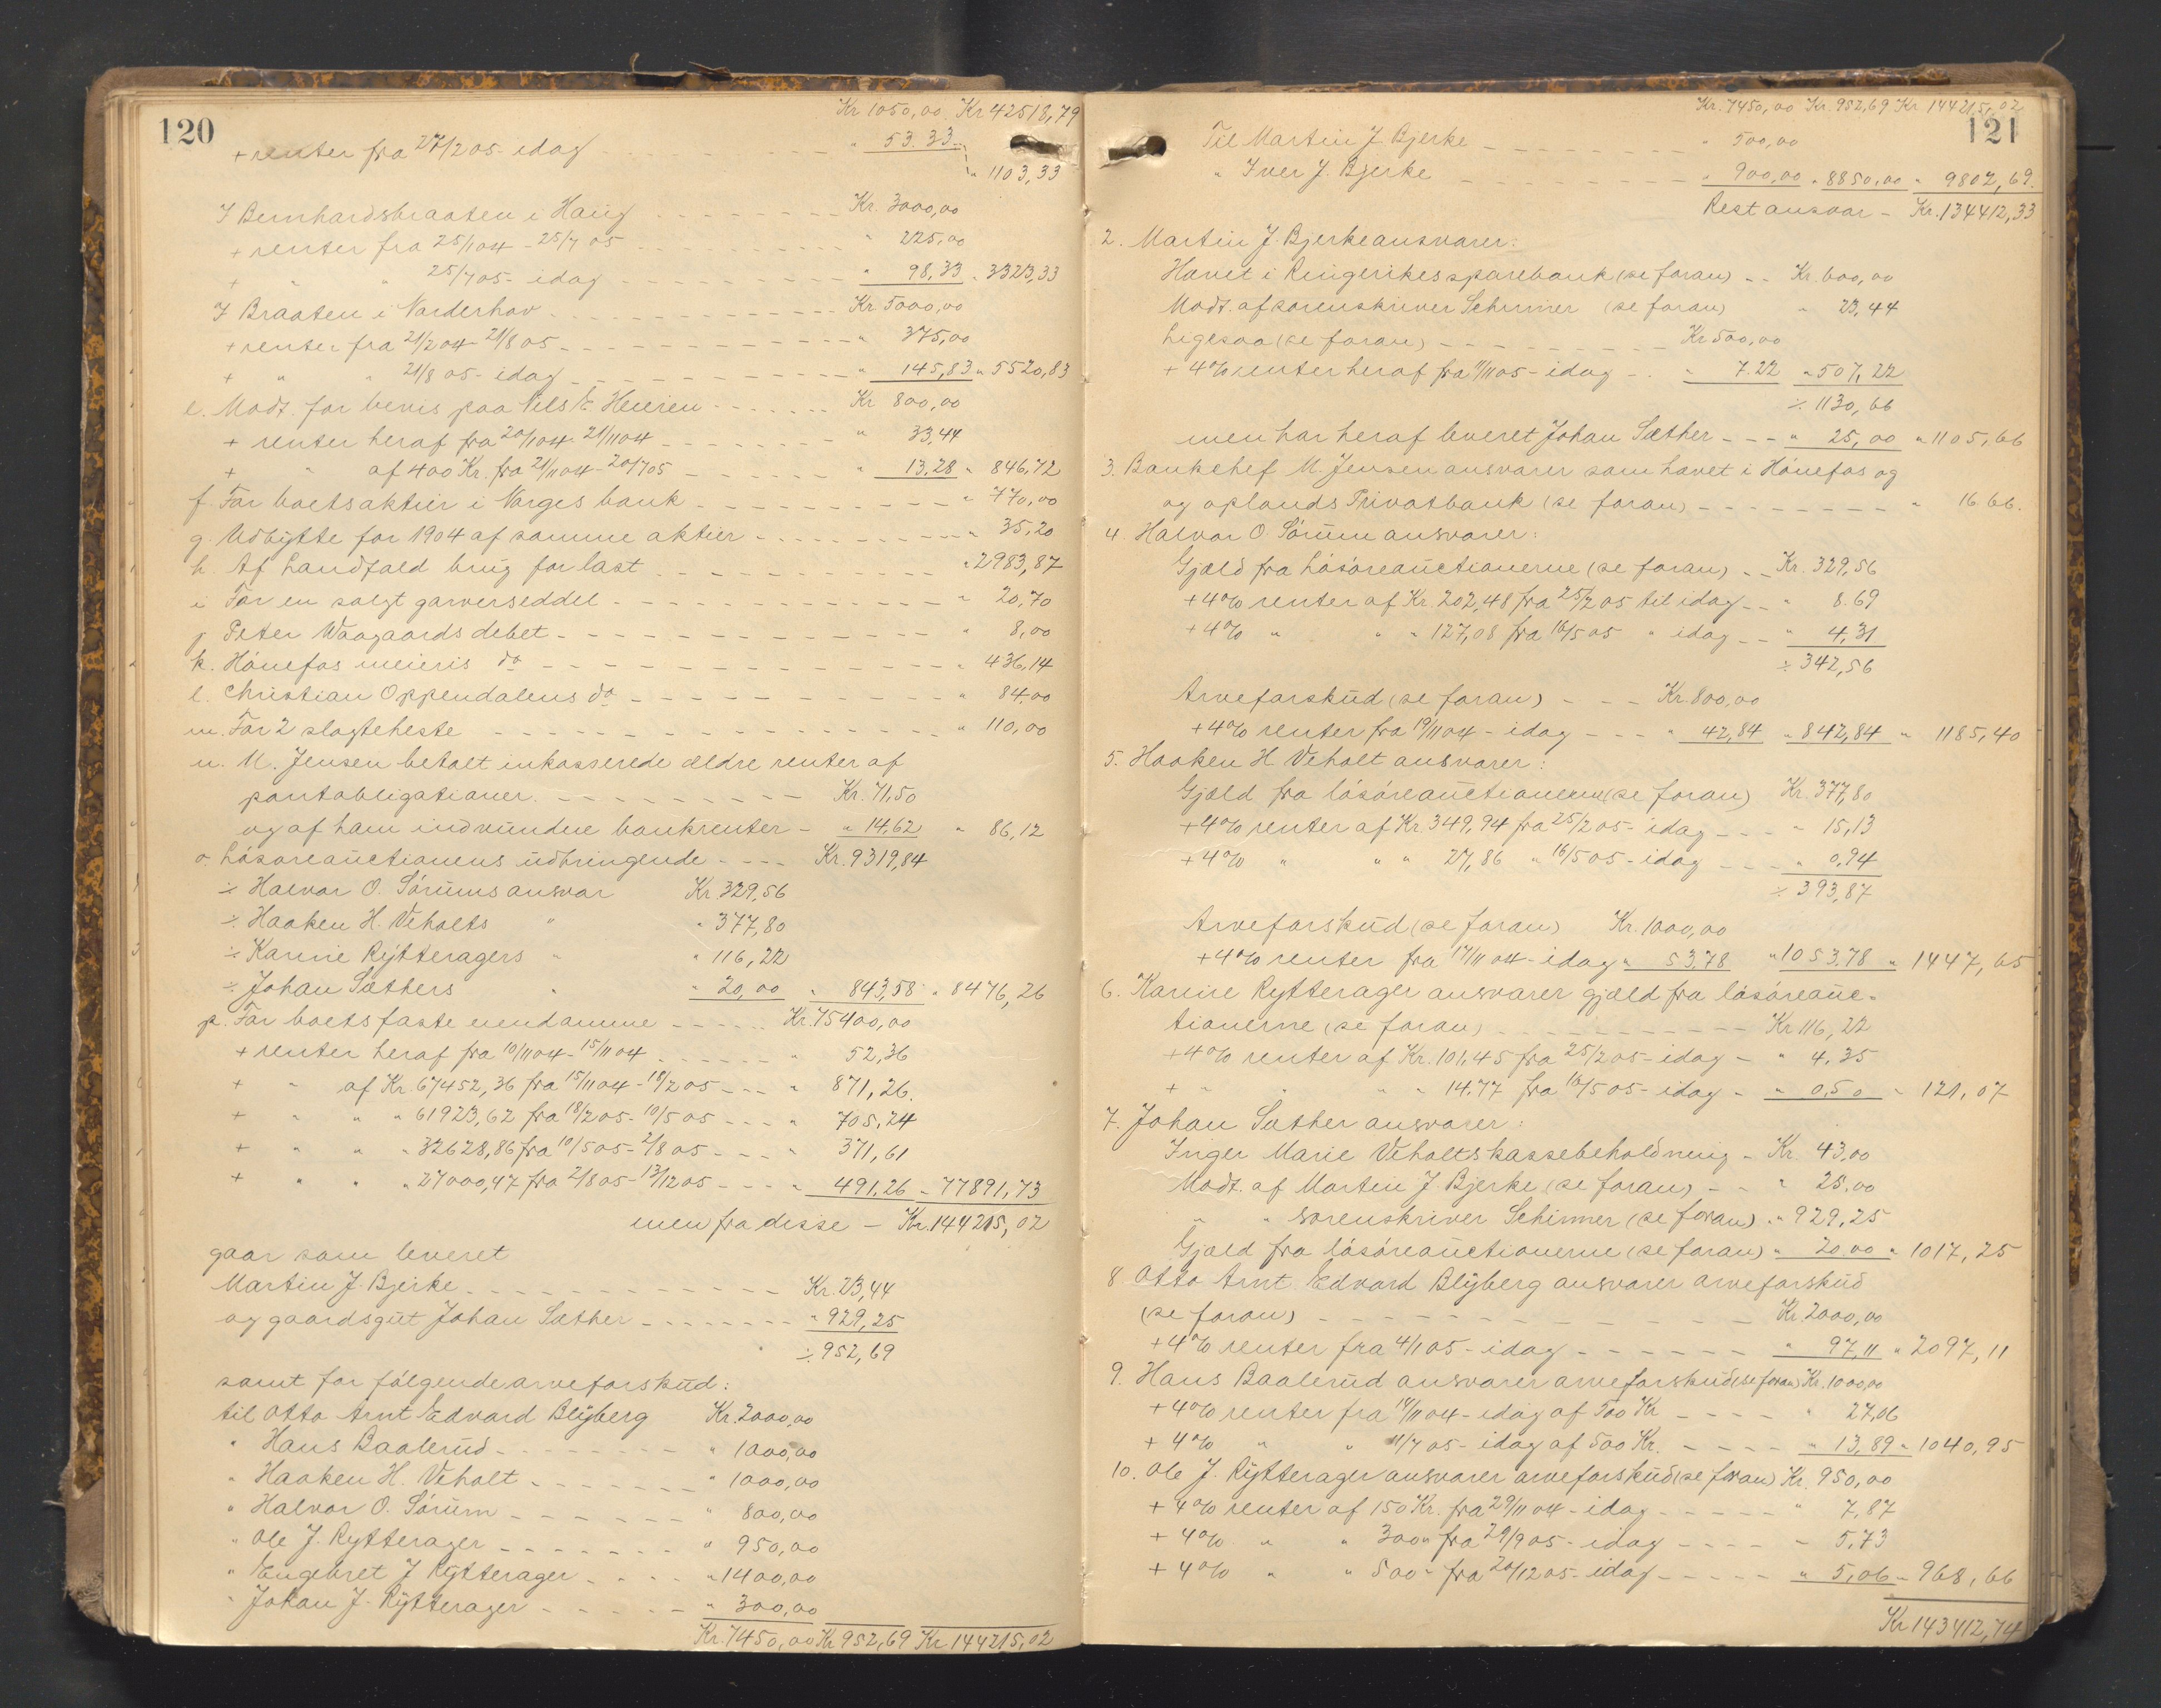 120
Kr 1050,00 Kr 42518,79
+ renter fra 27/2 05 - idag - - - " 53.33
" 1103,33
I Bernhardsbraaten i Haug - - - Kr. 3000,00
+ renter fra 25/1 04 - 25/7 05 - - - " 225,00
+ " " 25/7 05 - idag - - - " 98,33 " 3323,33
I Braaten i Norderhov - - - Kr 5000,00
+ renter fra 21/2 04 - 21/8 05 - - - " 375,00
+ " " 21/8 05 - idag - - - " 145,83 " 5520,83
e. Modt. for bevis paa Nils E Heieren - - - Kr 800,00
+ renter heraf fra 20/1 04 - 21/11 04 - - - " 33,44
+ " af 400 Kr. fra 21/11 04 - 20/7 05 - - - " 13,28 " 846,72
f. For boets aktier i Norges bank - - - " 770,00
g. Udbytte for 1904 af samme aktier - - - " 35,20
h. Af Landfald brug for last - - - " 2983,87
i For en solgt garverseddel - - - " 20,70
j Peter Waagaards debet - - - " 8,00
k. Hönefos meieris do - - - " 436,14
l. Christian Oppendalens do - - - " 84,00
m. For 2 slagteheste - - - " 110,00
n. M. Jensen betalt inkasserede ældre renter af
pantobligationer. - - - Kr. 71,50
og af ham indvundne bankrenter - " 14,62 " 86,12
o. Lösöreauctionens udbringende - - - Kr. 9319,84
÷ Halvor O. Sörums ansvar Kr. 329,56
÷ Haaken H. Veholts " " 377,80
÷ Karine Rytteragers " " 116,22
÷ Johan Sæthers " " 20,00 " 843,58 " 8476,26
p. For boets faste eiendomme - - - Kr. 75400,00
+ renter heraf fra 10/11 04 - 15/11 04 - - - " 52,36
+ " af Kr. 67452,36 fra 15/11 04 - 18/2 05 - - - " 871,26.
+ " " " 61923,62 fra 18/2 05 - 10/5 05 - - - " 705,24
+ " " " 32628,86 fra 10/5 05 - 2/8 05 - - - " 371,61
+ " " " 27000,47 fra 2/8 05 - 13/12 05 - - - " 491,26 " 77891,73
men fra disse - Kr. 144215,02
gaar som leveret
Martin J. Bjerke - - - Kr. 23,44
og gaardsgut Johan Sæther - - - " 929,25
÷ 952,69
samt for følgende arveforskud:
til Otto Arnt Edvard Blyberg Kr. 2000,00
" Hans Baalerud - - - " 1000,00
" Haaken H. Veholt - - - " 1000,00
" Halvor O. Sörum - - - " 800,00
" Ole J. Rytterager - - - " 950,00
" Engebret J Rytterager - - - " 1400,00
" Johan J. Rytterager - - - " 300,00
Kr. 7450,00 Kr 952,69 Kr 144215,02
121
Kr. 7450,00 Kr. 952,69 Kr 144215,02
Til Martin J. Bjerke - - - " 500,00
" Iver J. Bjerke - - - " 900,00 " 8850,00 " 9802,69.
Rest ansvar - Kr. 134412,33
2. Martin J. Bjerke ansvarer:
Hævet i Ringerikes sparebank (se foran) - - Kr. 600,00
Modt. af sorenskriver Schirmer (se foran) " 23,44
Ligesaa (se foran) - - - Kr 500,00
+ 4% renter heraf fra 11/11 05 - idag - - " 7.22 " 507,22
÷ 1130,66
men har heraf leveret Johan Sæther - - - " 25,00 " 1105,66
3. Bankchef M. Jensen ansvarer som hævet i Hönefos og
og oplands Privatbank (se foran) - - - " 16 66.
4. Halvor O. Sörum ansvarer:
Gjæld fra Lösöreauctionerne (se foran) - - Kr. 329,56
+ 4% renter af Kr. 202,48 fra 25/2 05 til idag - - " 8.69
+ 4% " " " 127,08 fra 16/5 05 " idag - - " 4,31
÷ 342,56
Arveforskud (se foran) - - - Kr. 800,00
+ 4% renter fra 19/11 04 - idag - - - " 42,84 " 842,84 " 1185,40
5. Haaken H Veholt ansvarer:
Gjæld fra lösöreauctionerne (se foran) Kr. 377,80
+ 4% renter af Kr. 349,94 fra 25/2 05 - idag - - - " 15,13
+ 4% " " " 27,86 " 16/5 05 - idag - - - " 0,94
÷ 393,87
Arveforskud (se foran) Kr. 1000,00
+ 4% renter fra 17/11 04 - idag " 53,78 " 1053,78 " 1447,65
6. Karine Rytterager ansvarer gjæld fra lösöreauc-
tionerne (se foran) - - - Kr 116,22
+ 4% renter af Kr. 101,45 fra 25/2 05 - idag - " 4,35
+ " " " " 14.77 fra 16/5 05 - idag - " 0,50 " 121,07
7. Johan Sæther ansvarer:
Inger Marie Veholts kassebeholdning - Kr. 43,00
Modt. af Martin J. Bjerke (se foran) - - " 25,00
" " sorenskriver Schirmer (se foran) " 929,25
Gjæld fra lösöreauctionerne (se foran) " 20.00 " 1017,25
8 Otto Arnt Edvard Blyberg ansvarer arveforskud
(se foran) - - - Kr. 2000,00
+ 4% renter fra 4/1 05 - idag - - - " 97,11 " 2097,11
9. Hans Baalerud ansvarer arveforskud (se foran) Kr. 1000,00
+ 4% renter fra 14/11 04 - idag af 500 Kr - - - " 27,06
+ 4% " " 11/7 05 - idag af 500 Kr. - - - " 13,89 " 1040,95
10. Ole J. Rytterager ansvarer arveforskud (se foran) Kr. 950,00
+ 4% renter af 150 Kr. fra 29/11 04 - idag - - - " 7,87
+ 4% " " 300 " fra 29/9 05 - idag - - - " 5,73
+ 4% " " 500 " fra 20/12 05 - idag - - - " 5,06 " 968,66
Kr 143412,74